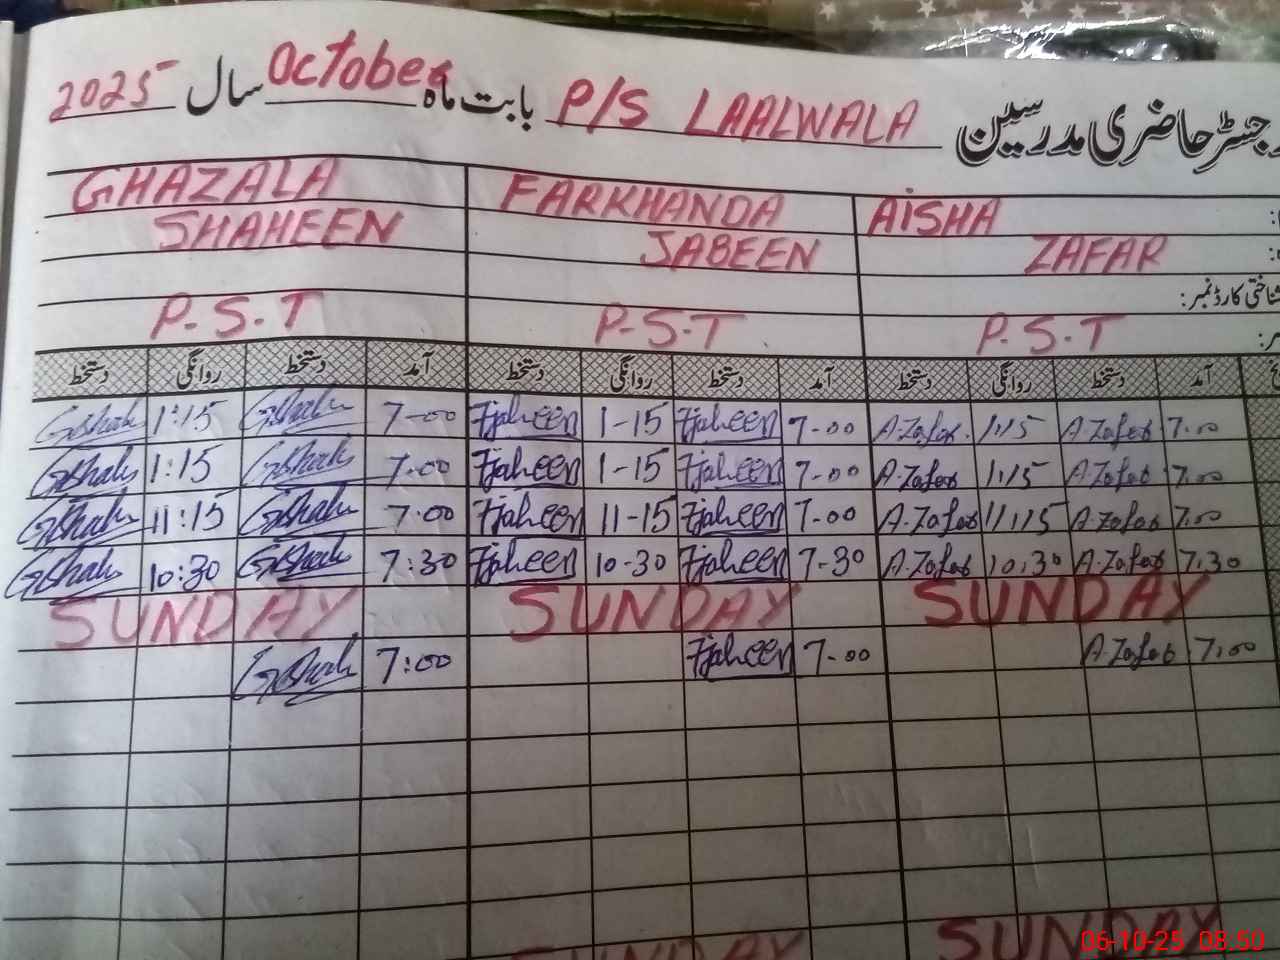 رجسٹر حاضری مدرسین P/S LAALWALA بابت ماہ October سال 2025
GHAZALA FARKHANDA AISHA
SHAHEEN JABEEN ZAFAR
شناختی کارڈ نمبر:
P.S.T P-S.T P.S.T
دستخط روانگی دستخط آمد دستخط روانگی دستخط آمد دستخط روانگی دستخط آمد
GShah 1:15 GShah 7-00 Fjaheen 1-15 Fjaheen 7-00 A.Zafar 1:15 A.Zafar 7.00
GShah 1:15 GShah 7.00 Fjaheen 1-15 Fjaheen 7-00 A.Zafar 1:15 A.Zafar 7.00
GShah 11:15 GShah 7:00 Fjaheen 11-15 Fjaheen 7-00 A.Zafar 11:15 A.Zafar 7.00
GShah 10:30 GShah 7:30 Fjaheen 10-30 Fjaheen 7-30 A.Zafar 10:30 A.Zafar 7.30
SUNDAY SUNDAY SUNDAY
GShah 7:00 Fjaheen 7-00 A.Zafar 7.00
SUNDAY SUNDAY
06-10-25 08:50